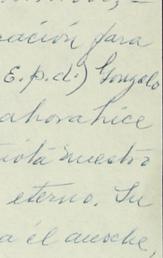 ación para
E.p.d.) Gonzalo
ahora hice
nuestro
eterno. Su
a él anoche,